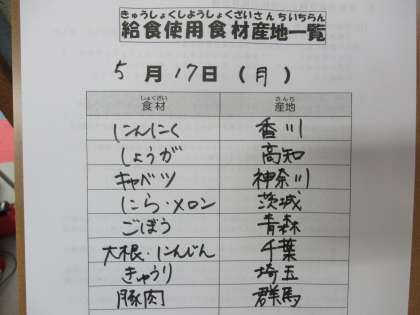 きゅうしょくしようしょくざいさんちいちらん
給食使用食材産地一覧
5月17日(月)
しょくざい さんち
食材 産地
にんにく 香川
しょうが 高知
キャベツ 神奈川
にら・メロン 茨城
ごぼう 青森
大根・にんじん 千葉
きゅうり 埼玉
豚肉 群馬